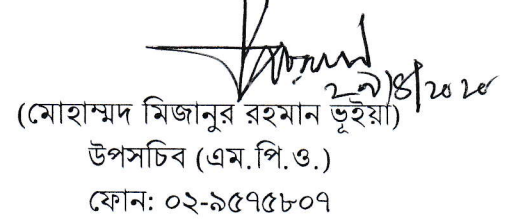 ২৭/৪/২০২০
(মোহাম্মদ মিজানুর রহমান ভূইয়া)
উপসচিব (এম.পি.ও.)
ফোন: ০২-৯৫৭৫৮০৭